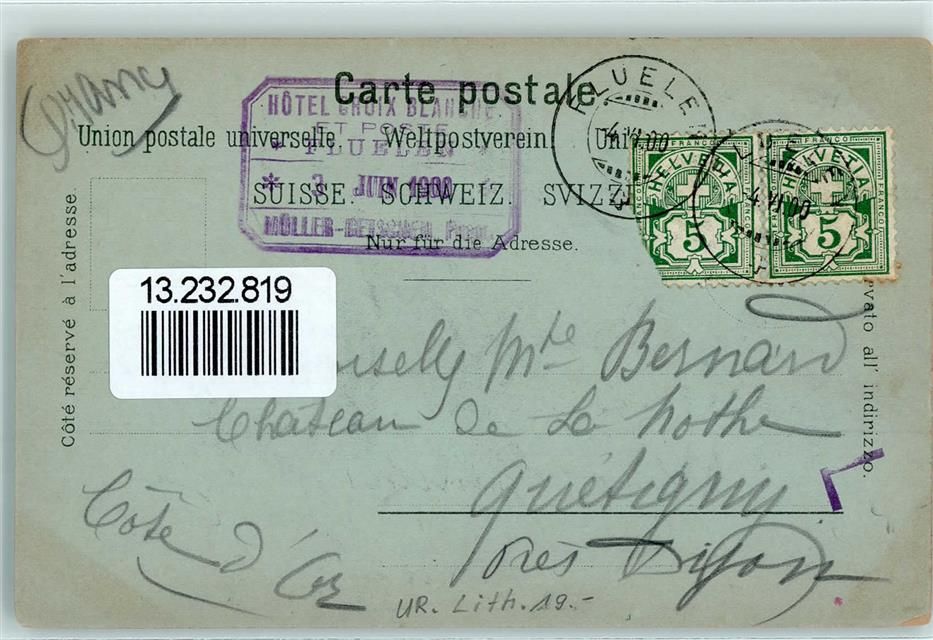 Carte postale.
Union postale universelle. Weltpostverein.
SUISSE. SCHWEIZ. SVIZZE
Nur für die Adresse.
HÔTEL CROIX BLANCHE
ET POSTE
* FLUELEN *
* 3 JUIN 1900
MÜLLER-GETSCHEN, Propr.
FLUELEN
4.VI.00
4.VI.00
FRANCO
HELVETIA
5
FRANCO
HELVETIA
5
Côté réservé à l'adresse.
vato all' indirizzo.
13.232.819
Mte Bernard
Château de La Mothe
Quétigny
près Dijon
Côte d'Or
UR. Lith. 19.-